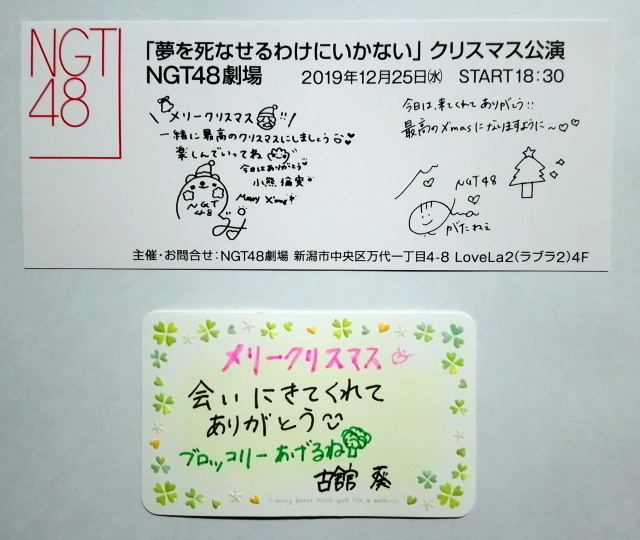 NGT
48
「夢を死なせるわけにいかない」クリスマス公演
NGT48劇場 2019年12月25日(水) START18:30
メリークリスマス!!
一緒に最高のクリスマスにしましょう
楽しんでいってね
今日はありがとう
小熊倫実
Merry X'mas
NGT
48
今日は、来てくれてありがとう!!
最高のX'masになりますように〜
NGT48
がたねぇ
主催・お問合せ:NGT48劇場 新潟市中央区万代一丁目4-8 LoveLa2(ラブラ2)4F
メリークリスマス
会いにきてくれて
ありがとう
ブロッコリーあげるね
古舘 葵